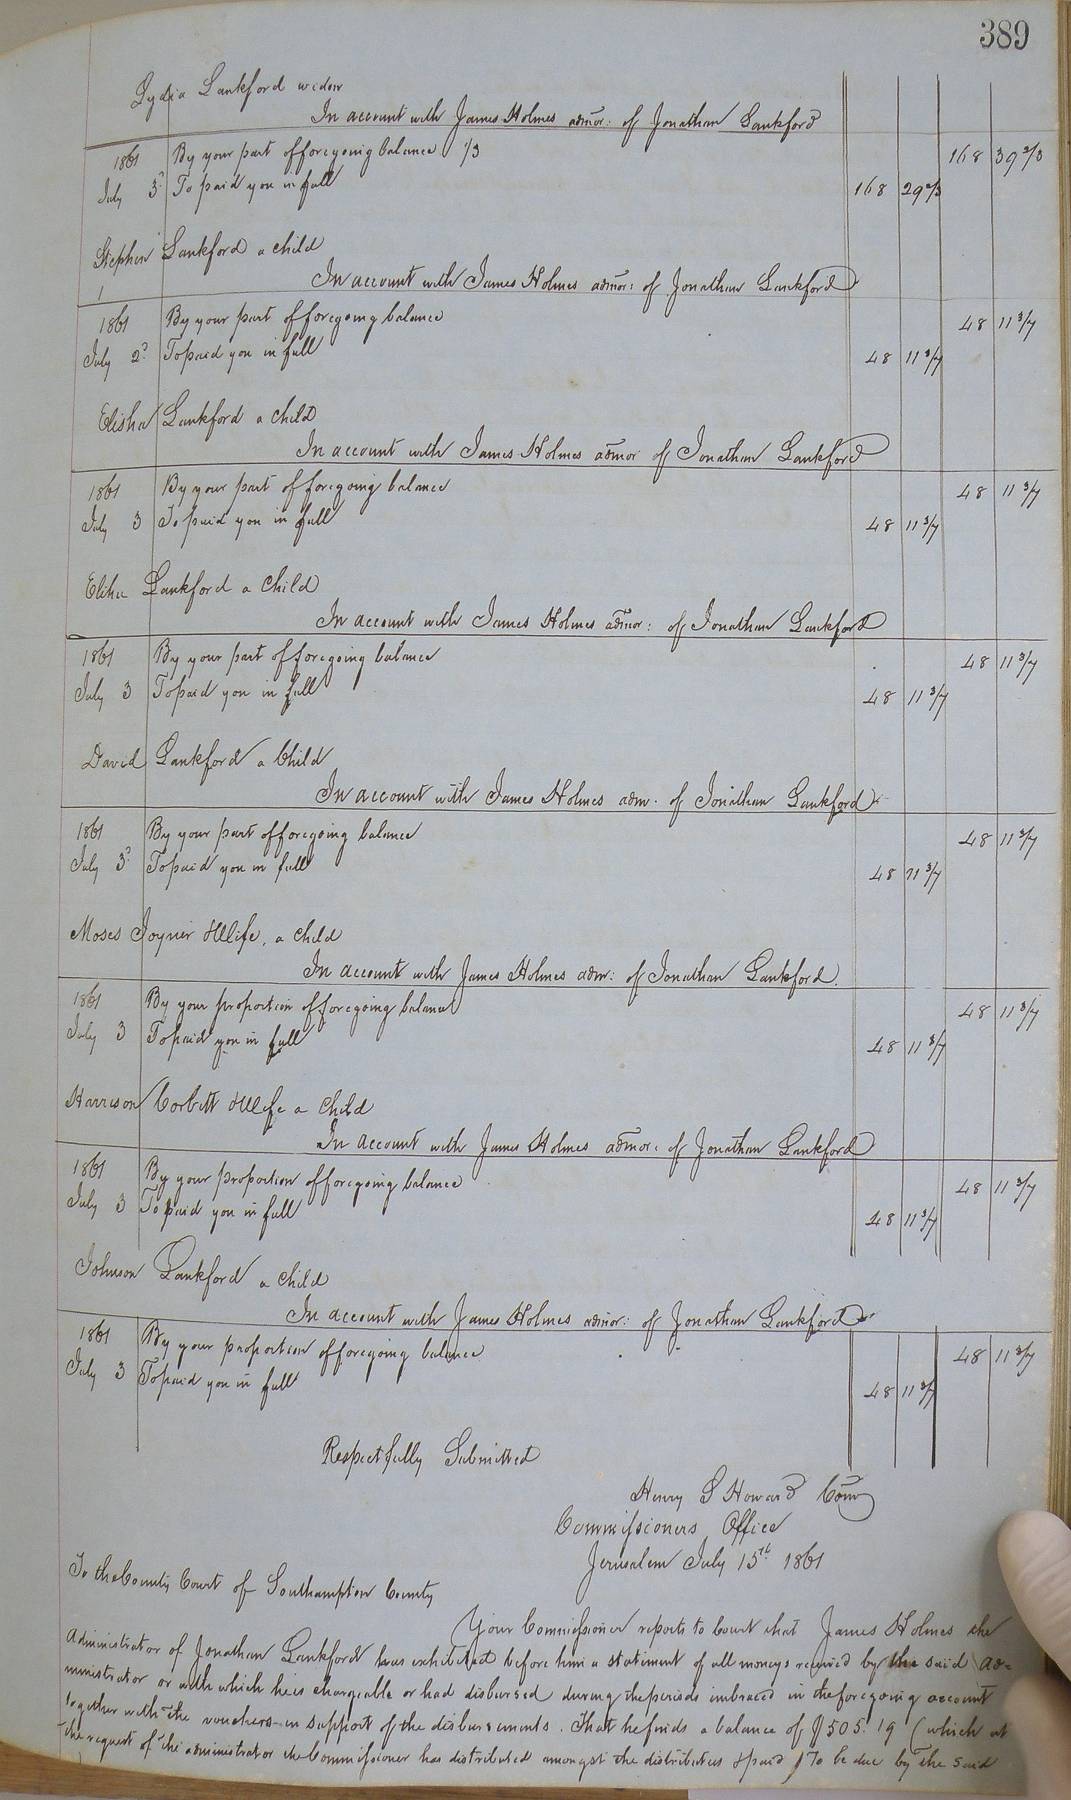 389
Lydia Lankford widow
In account with James Holmes admor: of Jonathan Lankford
1861 By your part of foregoing balance 1/3 168 39 2/3
July 3d To paid you in full 168 29 2/3
Stephen Lankford a child
In account with James Holmes admor: of Jonathan Lankford
1861 By your part of foregoing balance 48 11 3/7
July 2d To paid you in full 48 11 3/7
Elisha Lankford a child
In account with James Holmes admor of Jonathan Lankford
1861 By your part of foregoing balance 48 11 3/7
July 3 To paid you in full 48 11 3/7
Elihu Lankford a child
In account with James Holmes admor: of Jonathan Lankford
1861 By your part of foregoing balance 48 11 3/7
July 3 To paid you in full 48 11 3/7
David Lankford a Child
In account with James Holmes adm. of Jonathan Lankford
1861 By your part of foregoing balance 48 11 3/7
July 3d To paid you in full 48 11 3/7
Moses Joyner & Wife, a child
In account with James Holmes admr: of Jonathan Lankford.
1861 By your proportion of foregoing balance 48 11 3/7
July 3 To paid you in full 48 11 3/7
Harrison Corbitt & Wife a child
In account with James Holmes admor: of Jonathan Lankford
1861 By your proportion of foregoing balance 48 11 3/7
July 3 To paid you in full 48 11 3/7
Johnson Lankford a child
In account with James Holmes admor: of Jonathan Lankford
1861 By your proportion of foregoing balance 48 11 3/7
July 3 To paid you in full 48 11 3/7
Respectfully Submitted
Henry S Howard Com
Commissioners Office
Jerusalem July 15th 1861
To the County Court of Southampton County
Your Commissioner reports to Court that James Holmes the
Administrator of Jonathan Lankford has exhibited before him a statement of all moneys received by the said ad-
ministrator or with which he is chargeable or had disbursed during the periods imbraced in the foregoing account
together with the vouchers in support of the disbursements. That he finds a balance of $505.19 (which at
the request of the administrator the Commissioner has distributed amongst the distributees & paid) To be due by the said